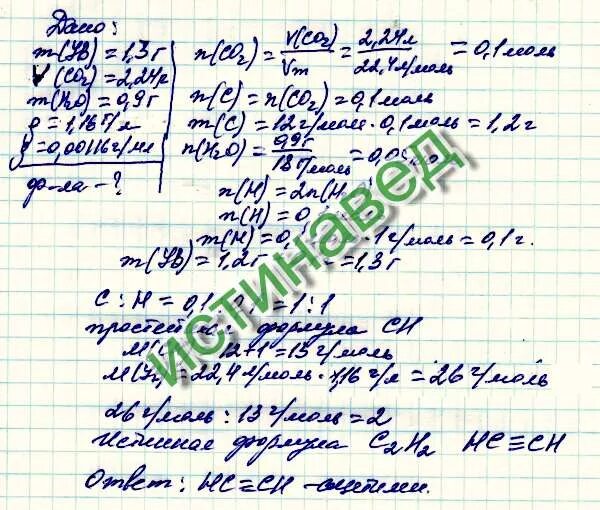 Дано:
m(Ув) = 1,3 г
V(CO₂) = 2,24 л
m(H₂O) = 0,9 г
ρ = 1,16 г/л
= 0,00116 г/мл
ф-ла - ?
n(CO₂) = V(CO₂)/Vm = 2,24 л/22,4 л/моль = 0,1 моль
n(C) = n(CO₂) = 0,1 моль
m(C) = 12 г/моль · 0,1 моль = 1,2 г
n(H₂O) = 0,9 г/18 г/моль = 0,0
n(H) = 2n(H
n(H) = 0,
m(H) = 0, · 1 г/моль = 0,1 г.
m(Ув) = 1,2 г = 1,3 г
C : H = 0,1 : = 1 : 1
формула CH
M( 12+1 = 13 г/моль
= 22,4 л/моль · 1,16 г/л = 26 г/моль
26 г/моль : 13 г/моль = 2
Истинная формула C₂H₂ HC≡CH
Ответ: HC≡CH - ацетилен.
истинавед